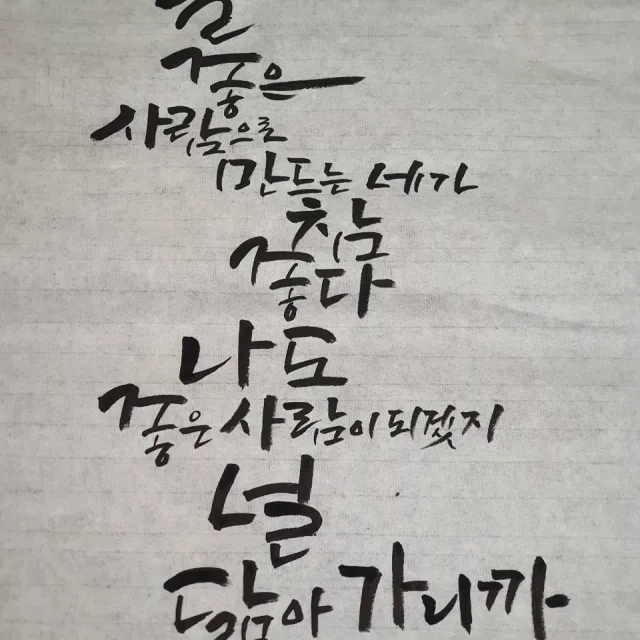 좋은
사람으로
만드는 네가
참
좋다
나도
좋은 사람이 되겠지
널
닮아 가니까